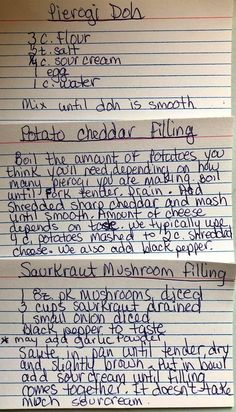 Pierogi Doh
3 c. flour
t. salt
c. sour cream
1 egg
1 c. water
Mix until doh is smooth
Potato cheddar Filling
Boil the amount of potatoes you
think you'll need, depending on how
many pierogi you are making. Boil
until fork tender. Drain. Add
shredded sharp cheddar and mash
until smooth. Amount of cheese
depends on taste. we typically use
4 c. potatoes mashed to 1/2 c. shredded
cheese. we also add black pepper.
Saurkraut Mushroom Filling
1 8z. pk mushrooms, diced
3 cups saurkraut drained
1 small onion diced
black pepper to taste
* may add garlic powder
Saute in pan until tender, dry
and slightly brown. Put in bowl
add sour cream until filling
comes together. It doesn't take
much sourcream.